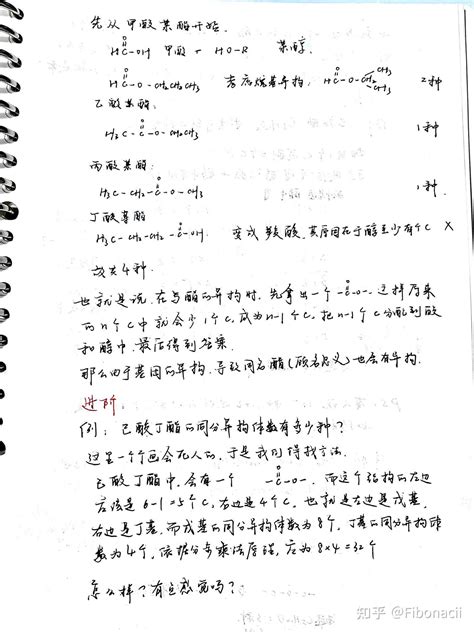 先从甲酸某酯开始.
HC-OH 甲酸 + HO-R 某醇.
O
HC-O-CH2CH2CH3 考虑烷基异构: HC-O-CH2 CH3 CH3 2种
乙酸某酯:
H3C-C-O-CH2CH3 1种
丙酸某酯:
H3C-CH2-C-O-CH3 1种.
丁酸某酯
H3C-CH2-CH2-C-OH. 变成羧酸,其原因在于醇至少有1个C X
故共4种.
也就是说,在写酯的异构时,先拿出一个-C-O-.这样原来
的n个C中就会少1个C,成为n-1个C,把n-1个C分配到酸
和醇中,最后得到答案.
那么由于基团的异构,导致同名酯(顾名思义)也会有异构.
进阶:
例: 己酸丁酯的同分异构体数有多少种?
这里一个个画会死人的,于是我们得找方法.
己酸丁酯中,会有一个 -C-O-. 而这个结构的左边
应该是6-1=5个C,右边是4个C,也就是左边是戊基,
右边是丁基,而戊基的同分异构体数为8个,丁基的同分异构体
数为4个,依据分步乘法原理,应为8×4=32个
怎么样?有点感觉吗?
知乎 @Fibonacii